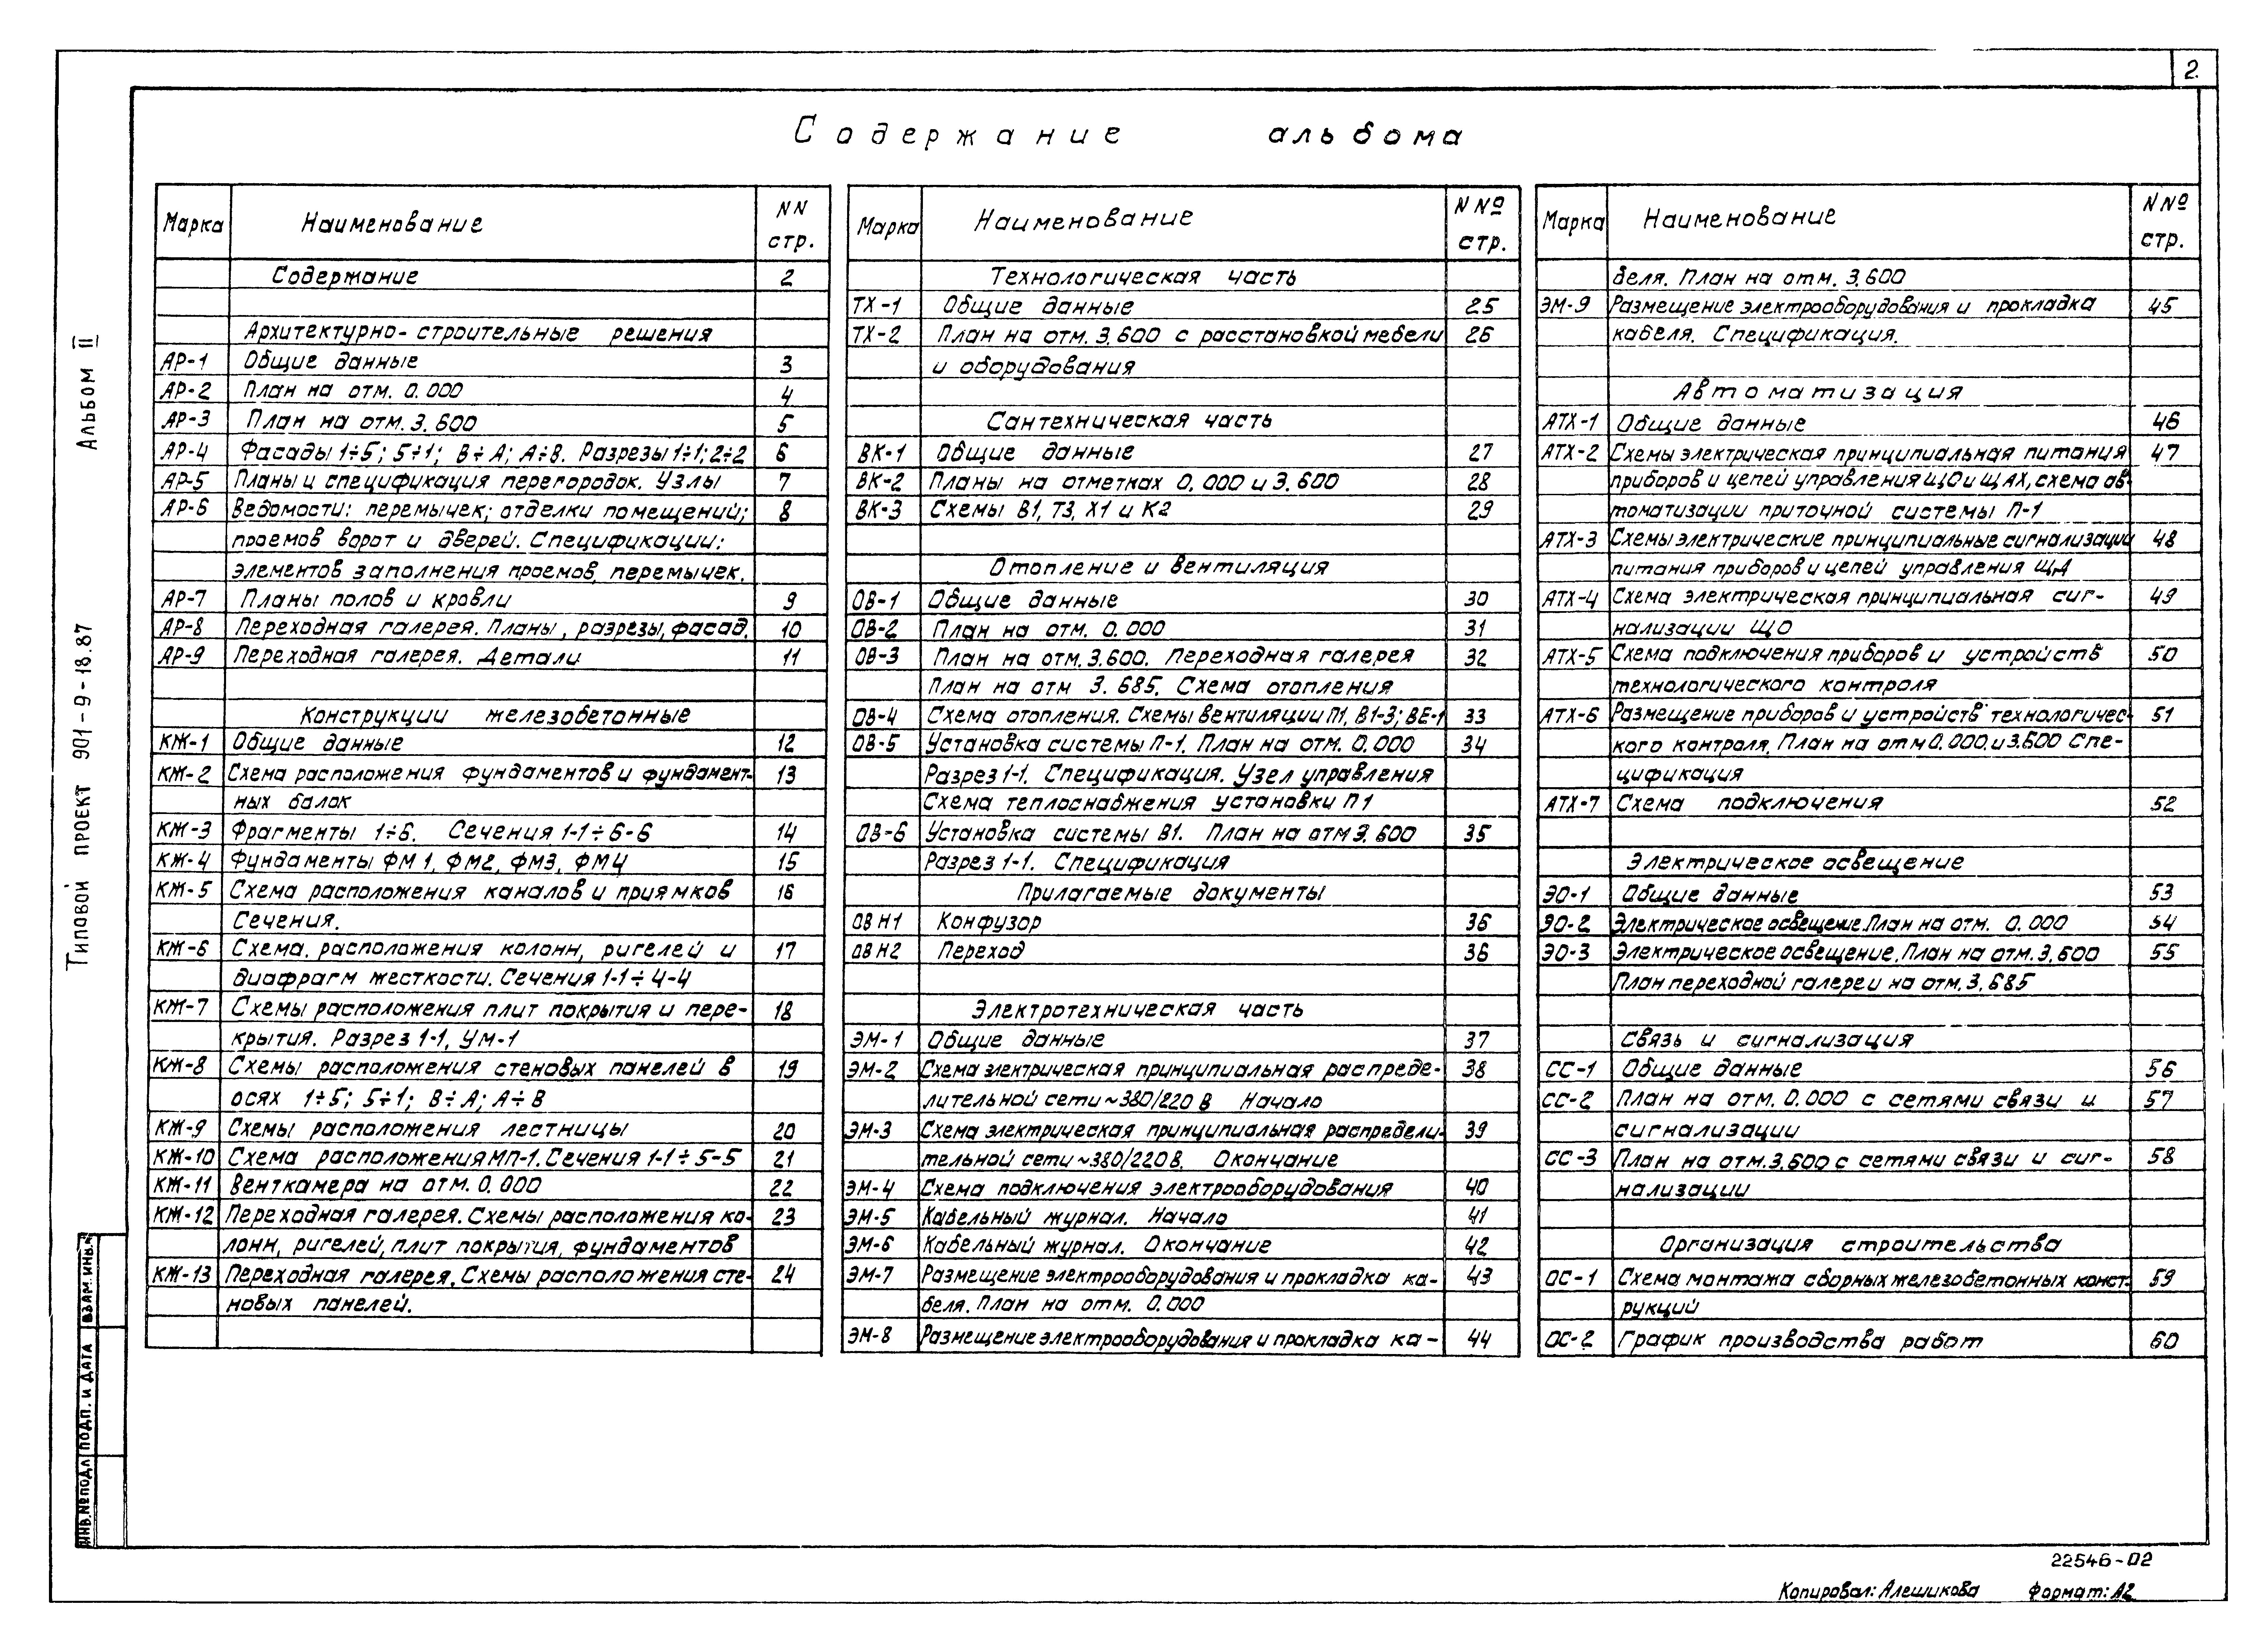 2
Содержание альбома
Альбом II
Типовой проект 901-9-18.87
Марка Наименование NN стр.
Содержание 2
Архитектурно-строительные решения
АР-1 Общие данные 3
АР-2 План на отм. 0.000 4
АР-3 План на отм. 3.600 5
АР-4 Фасады 1÷5; 5÷1; В÷А; А÷В. Разрезы 1÷1; 2÷2 6
АР-5 Планы и спецификация перегородок. Узлы 7
АР-6 Ведомости: перемычек; отделки помещений; 8
проемов ворот и дверей. Спецификации:
элементов заполнения проемов, перемычек.
АР-7 Планы полов и кровли 9
АР-8 Переходная галерея. Планы, разрезы, фасад. 10
АР-9 Переходная галерея. Детали 11
Конструкции железобетонные
КЖ-1 Общие данные 12
КЖ-2 Схема расположения фундаментов и фундамент- 13
ных балок
КЖ-3 Фрагменты 1÷6. Сечения 1-1÷6-6 14
КЖ-4 Фундаменты ФМ1, ФМ2, ФМ3, ФМ4 15
КЖ-5 Схема расположения каналов и приямков 16
Сечения.
КЖ-6 Схема. расположения колонн, ригелей и 17
диафрагм жесткости. Сечения 1-1÷4-4
КЖ-7 Схемы расположения плит покрытия и пере- 18
крытия. Разрез 1-1, УМ-1
КЖ-8 Схемы расположения стеновых панелей в 19
осях 1÷5; 5÷1; В÷А; А÷В
КЖ-9 Схемы расположения лестницы 20
КЖ-10 Схема расположения МП-1. Сечения 1-1÷5-5 21
КЖ-11 Венткамера на отм. 0.000 22
КЖ-12 Переходная галерея. Схемы расположения ко- 23
лонн, ригелей, плит покрытия, фундаментов
КЖ-13 Переходная галерея. Схемы расположения сте- 24
новых панелей.
Марка Наименование N№ стр.
Технологическая часть
ТХ-1 Общие данные 25
ТХ-2 План на отм. 3.600 с расстановкой мебели 26
и оборудования
Сантехническая часть
ВК-1 Общие данные 27
ВК-2 Планы на отметках 0.000 и 3.600 28
ВК-3 Схемы В1, Т3, Х1 и К2 29
Отопление и вентиляция
ОВ-1 Общие данные 30
ОВ-2 План на отм. 0.000 31
ОВ-3 План на отм. 3.600. Переходная галерея 32
План на отм 3.685. Схема отопления
ОВ-4 Схема отопления. Схемы вентиляции П1, В1-3; ВЕ-1 33
ОВ-5 Установка системы П-1. План на отм. 0.000 34
Разрез 1-1. Спецификация. Узел управления
Схема теплоснабжения установки П1
ОВ-6 Установка системы В1. План на отм 3.600 35
Разрез 1-1. Спецификация
Прилагаемые документы
ОВ Н1 Конфузор 36
ОВ Н2 Переход 36
Электротехническая часть
ЭМ-1 Общие данные 37
ЭМ-2 Схема электрическая принципиальная распреде- 38
лительной сети ~380/220 В Начало
ЭМ-3 Схема электрическая принципиальная распредели- 39
тельной сети ~380/220 В. Окончание
ЭМ-4 Схема подключения электрооборудования 40
ЭМ-5 Кабельный журнал. Начало 41
ЭМ-6 Кабельный журнал. Окончание 42
ЭМ-7 Размещение электрооборудования и прокладка ка- 43
беля. План на отм. 0.000
ЭМ-8 Размещение электрооборудования и прокладка ка- 44
Марка Наименование N№ стр.
беля. План на отм. 3.600
ЭМ-9 Размещение электрооборудования и прокладка 45
кабеля. Спецификация.
Автоматизация
АТХ-1 Общие данные 46
АТХ-2 Схемы электрическая принципиальная питания 47
приборов и цепей управления ЩО и ЩАХ, схема ав-
томатизации приточной системы П-1
АТХ-3 Схемы электрические принципиальные сигнализации 48
питания приборов и цепей управления ЩД
АТХ-4 Схема электрическая принципиальная сиг- 49
нализации ЩО
АТХ-5 Схема подключения приборов и устройств 50
технологического контроля
АТХ-6 Размещение приборов и устройств технологичес- 51
кого контроля. План на отм 0.000. и 3.600 Спе-
цификация
АТХ-7 Схема подключения 52
Электрическое освещение
ЭО-1 Общие данные 53
ЭО-2 Электрическое освещение. План на отм. 0.000 54
ЭО-3 Электрическое освещение. План на отм. 3.600 55
План переходной галереи на отм. 3.685
Связь и сигнализация
СС-1 Общие данные 56
СС-2 План на отм. 0.000 с сетями связи и 57
сигнализации
СС-3 План на отм. 3.600 с сетями связи и сиг- 58
нализации
Организация строительства
ОС-1 Схема монтажа сборных железобетонных конст- 59
рукций
ОС-2 График производства работ 60
Инв.№подл Подп. и дата Взам. инв.№
22546-02
Копировал: Алешикова Формат: А2